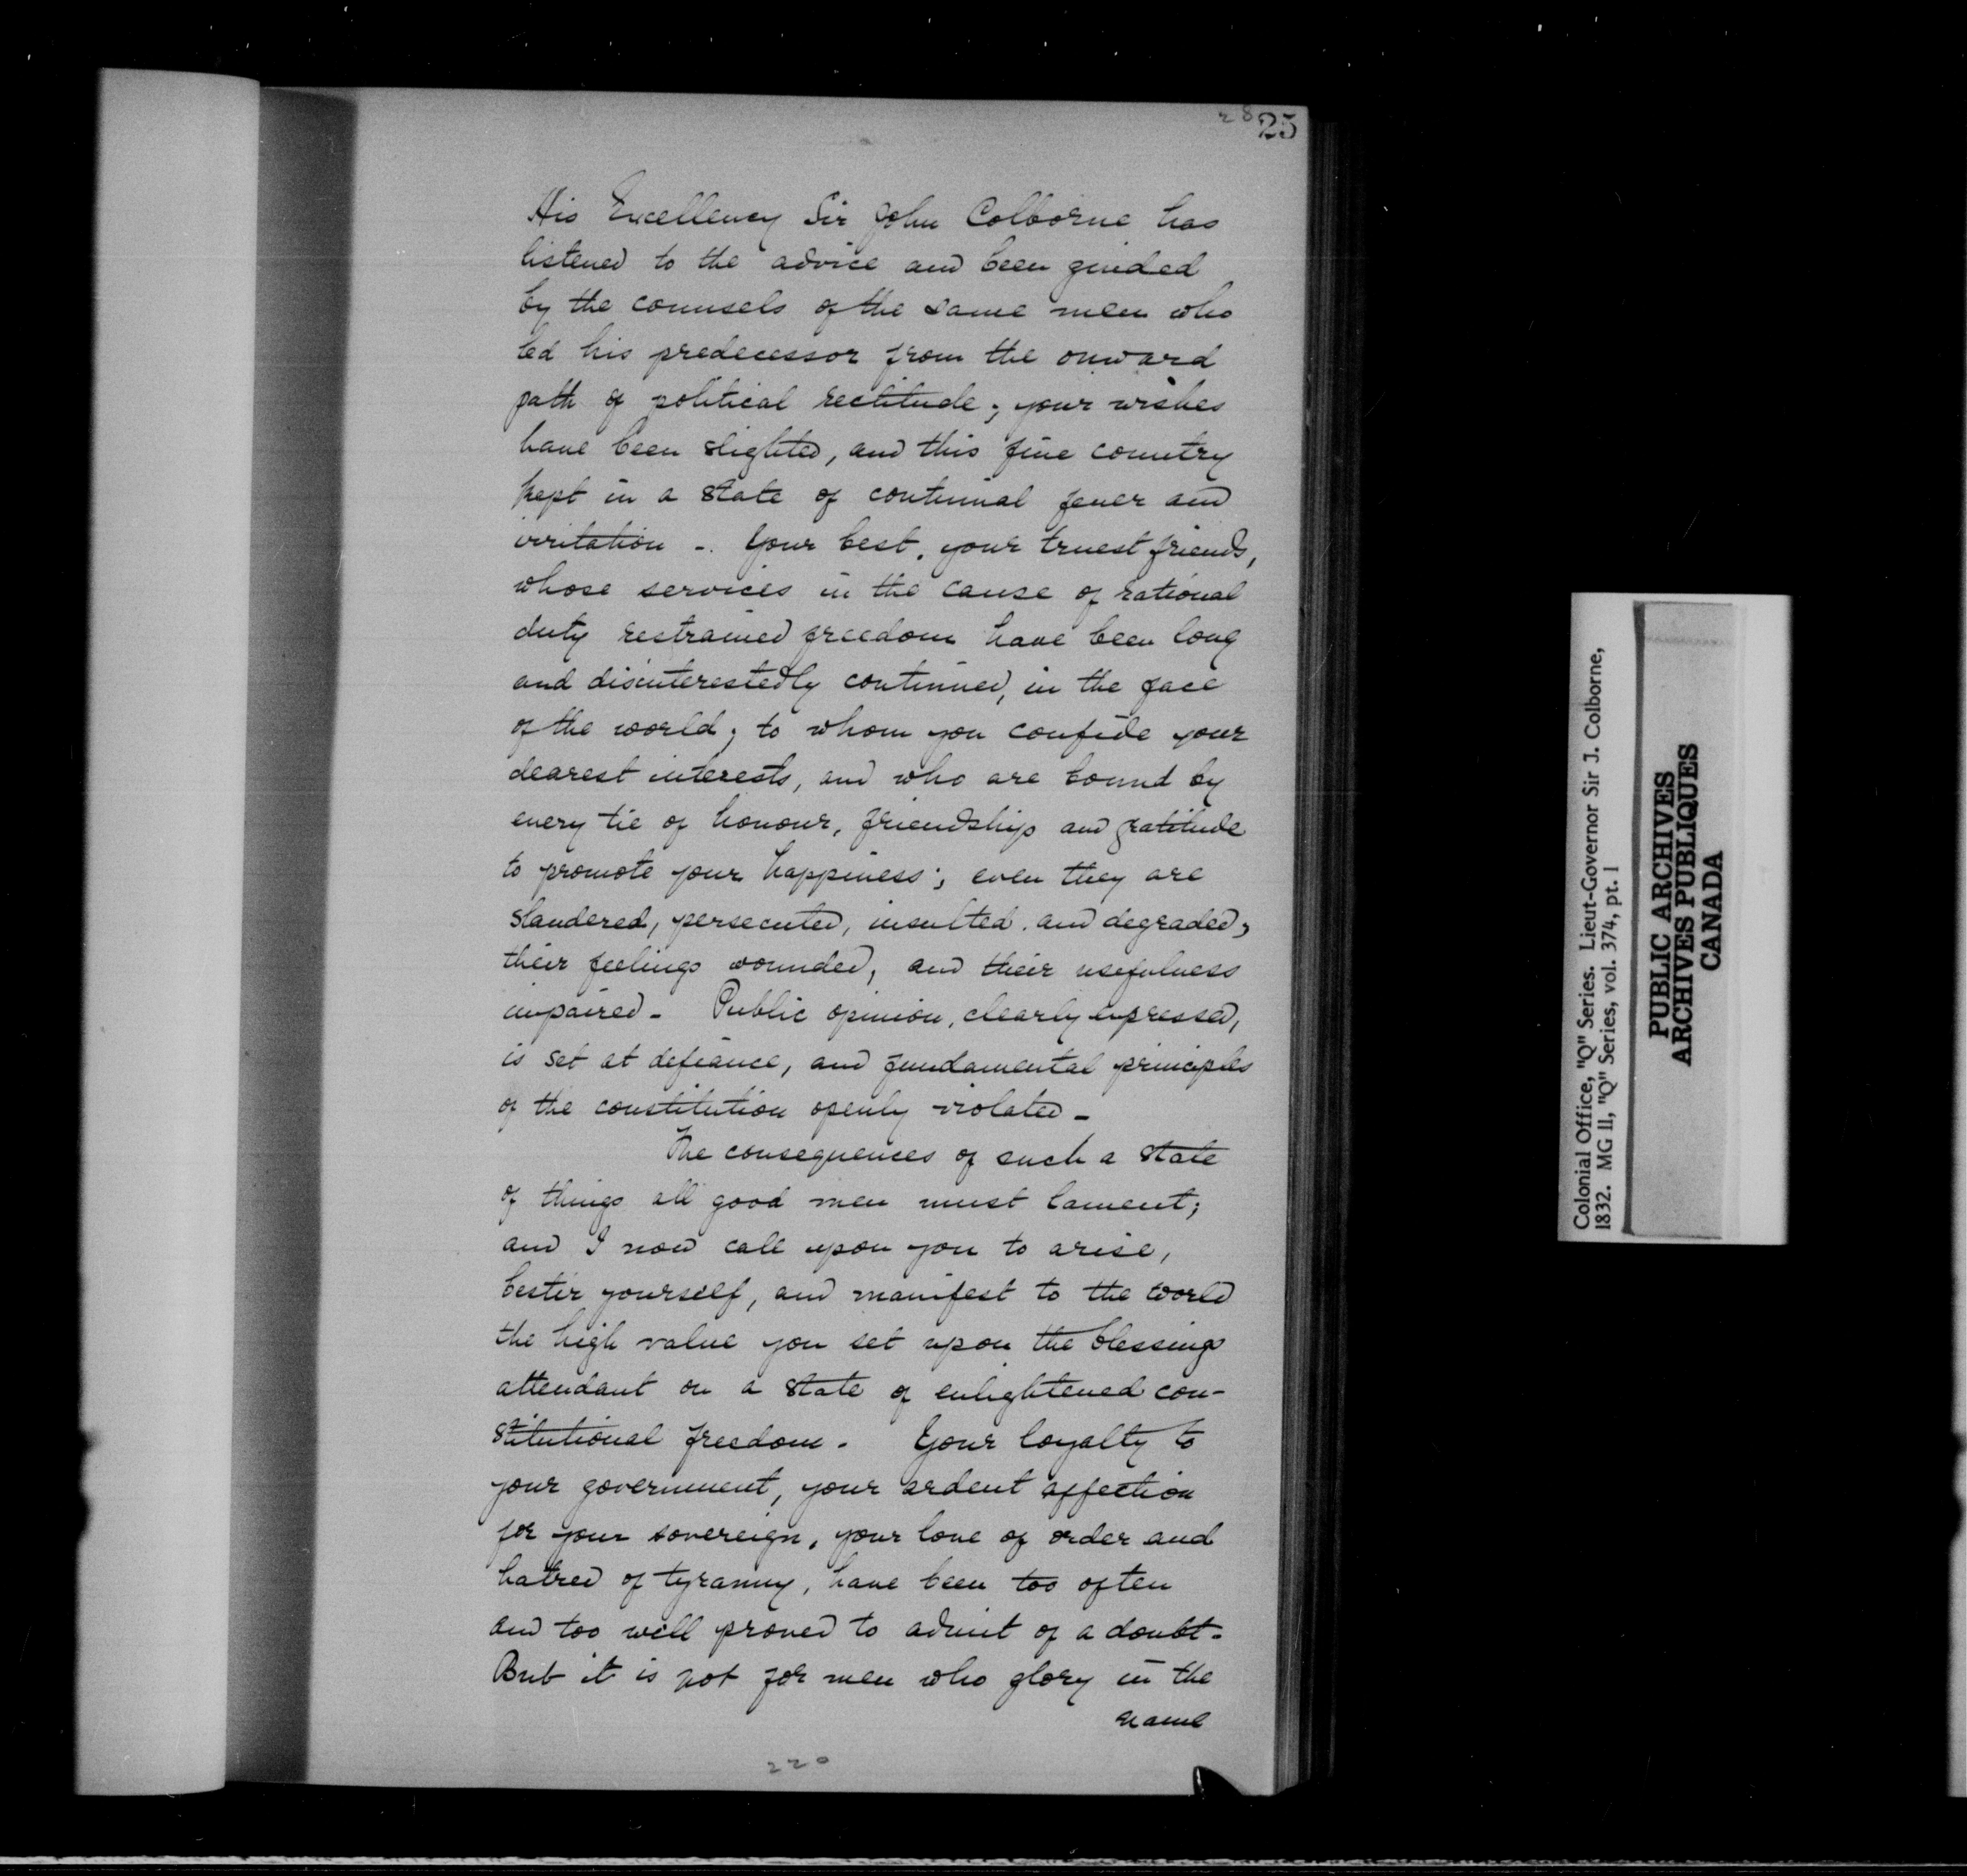 28
25
His Excellency Sir John Colborne has
listened to the advice and been guided
by the counsels of the same men who
led his predecessor from the onward
path of political rectitude; your wishes
have been slighted, and this fine country
kept in a state of continual fever and
irritation -. Your best, your truest friends,
whose services in the cause of rational
duty restrained freedom have been long
and disinterestedly continued, in the face
of the world; to whom you confide your
dearest interests, and who are bound by
every tie of honour, friendship and gratitude
to promote your happiness; even they are
slandered, persecuted, insulted, and degraded;
their feelings wounded, and their usefulness
impaired - Public opinion, clearly expressed,
is set at defiance, and fundamental principles
of the constitution openly violated -
The consequences of such a state
of things all good men must lament;
and I now call upon you to arise,
bestir yourself, and manifest to the world
the high value you set upon the blessings
attendant on a state of enlightened con-
stitutional freedom. Your loyalty to
your government, your ardent affection
for your sovereign, your love of order and
hatred of tyranny, have been too often
and too well proved to admit of a doubt.
But it is not for men who glory in the
name
220
Colonial Office, "Q" Series. Lieut-Governor Sir J. Colborne,
1832. MG 11, "Q" Series, vol. 374, pt. 1
PUBLIC ARCHIVES
ARCHIVES PUBLIQUES
CANADA